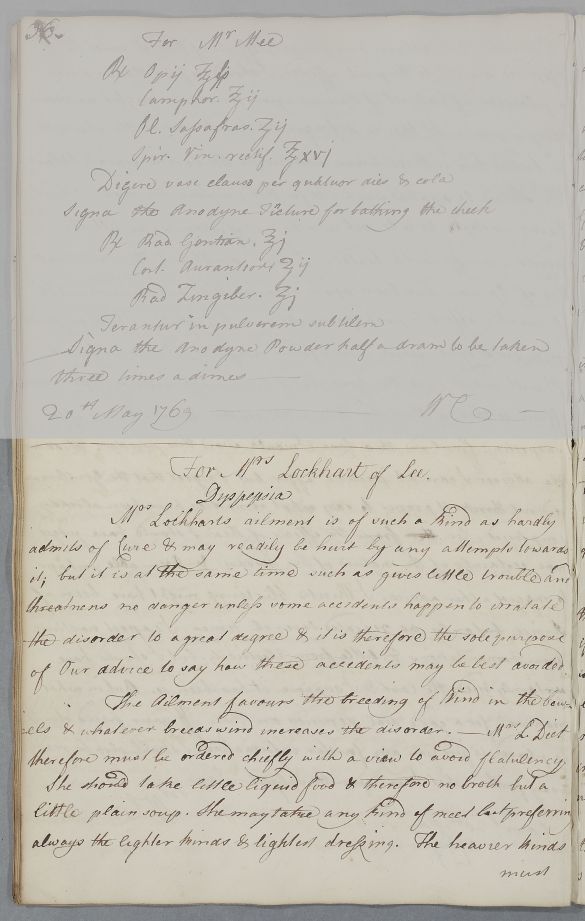 36.
For Mr Mee
℞ Opij ʒfs
Camphor. ʒij
Ol. Sassafras. ʒij
Spir. Vin. rectif. ℥xvj
Digere vase clauso per quatuor dies & cola
Signa the Anodyne Tincture for bathing the cheek
℞ Rad Gentian. ʒj
Cort. Aurantior ʒij
Rad Zingiber. ʒj
Terantur in pulverem subtilem
Signa the Anodyne Powder half a dram to be taken
three times a dimes
20th May 1769 W C
For Mrs Lockhart of Lee.
Dyspepsia
Mrs Lockharts ailment is of such a kind as hardly
admits of Cure & may readily be hurt by any attempts towards
it; but it is at the same time such as gives little trouble and
threatnens no danger unless some accidents happen to irratate
the disorder to a great degree & it is therefore the sole purpose
of Our advice to say how these accidents may be best avoided
The Ailment favours the breeding of Wind in the bow-
els & whatever breeds wind increases the disorder. — Mrs L Diet
therefore must be ordered chiefly with a view to avoid flatulency
She should take little liquid food & therefore no broth but a
little plain soup. She may take any kind of meat but preferrin
always the lighter kinds & lightest dressing. The heavier kinds
must